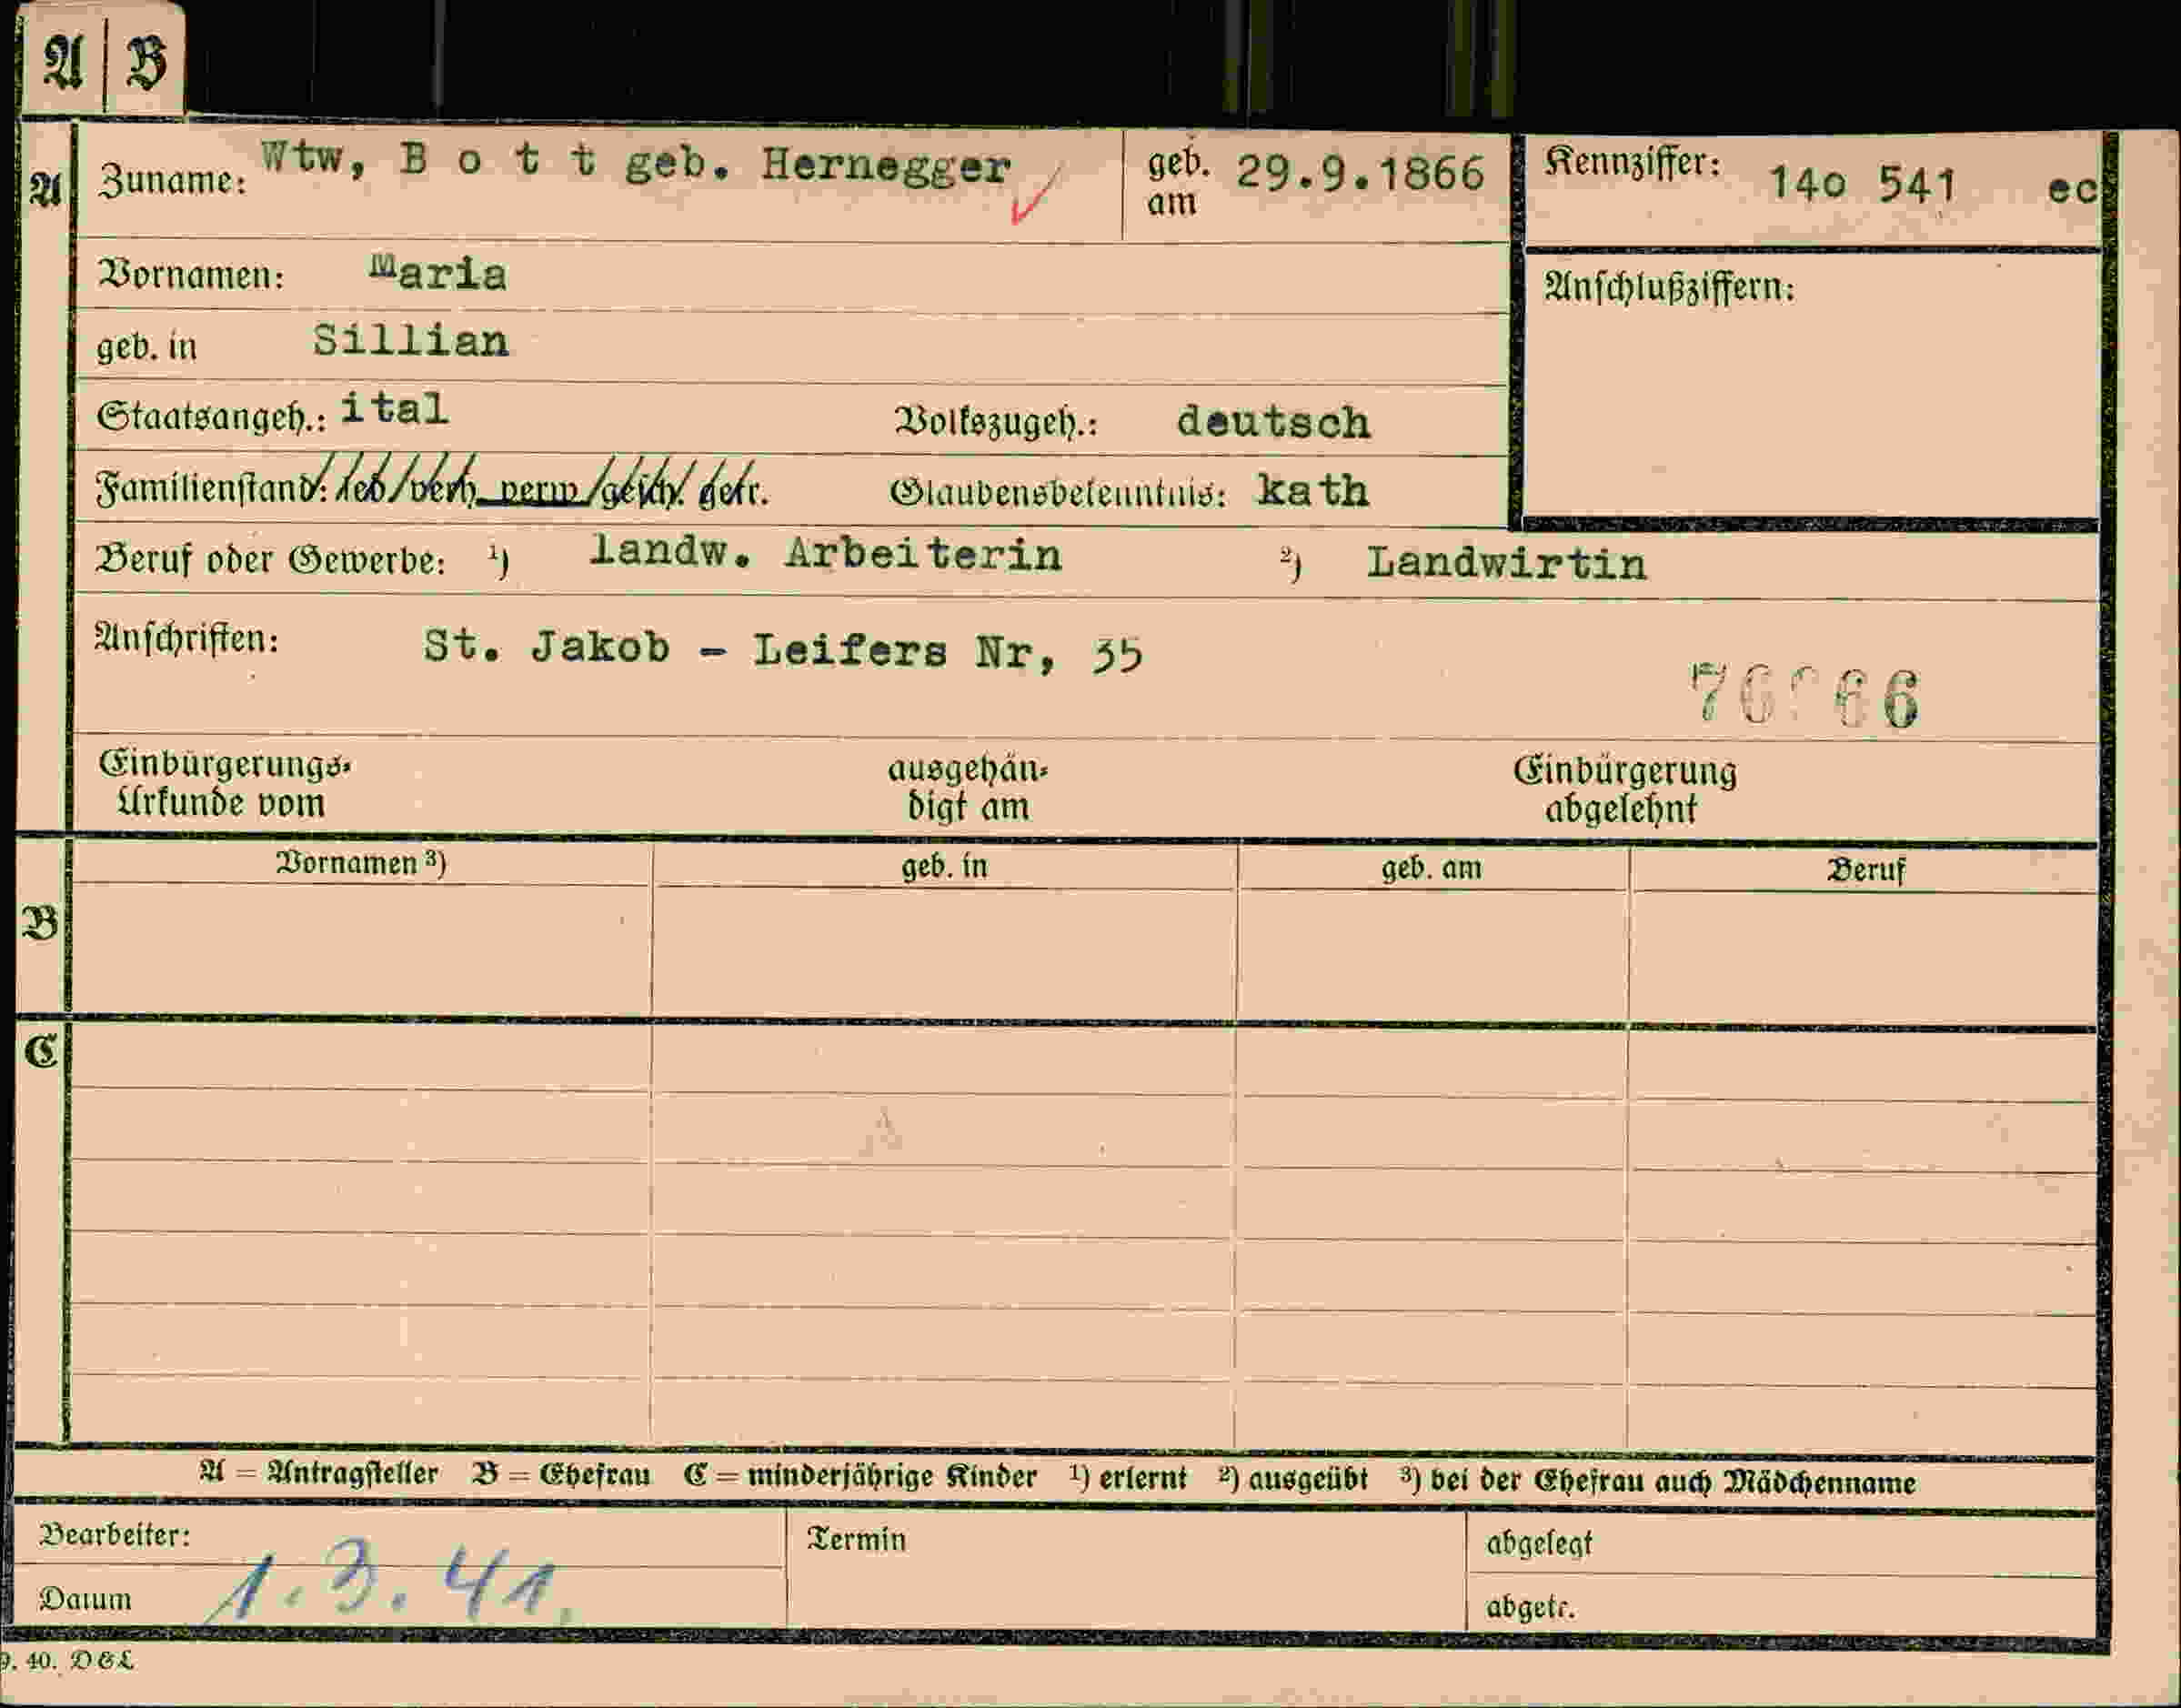 A B
A Zuname: Wtw, B o t t geb. Hernegger geb. am 29.9.1866 Kennziffer: 14o 541 ec
Vornamen: Maria
Anschlußziffern:
geb. in Sillian
Staatsangeh.: ital Volkszugeh.: deutsch
Familienstand: led/verh. verw/gesch. getr. Glaubensbekenntnis: kath
Beruf oder Gewerbe: ¹) landw. Arbeiterin ²) Landwirtin
Anschriften: St. Jakob - Leifers Nr, 35
Einbürgerungs-
Urkunde vom
ausgehän-
digt am
Einbürgerung
abgelehnt
B Vornamen ³) geb. in geb. am Beruf
C
A = Antragsteller B = Ehefrau C = minderjährige Kinder ¹) erlernt ²) ausgeübt ³) bei der Ehefrau auch Mädchenname
Bearbeiter: Termin abgelegt
Datum 1.3.41. abgetr.
9. 40. D&L